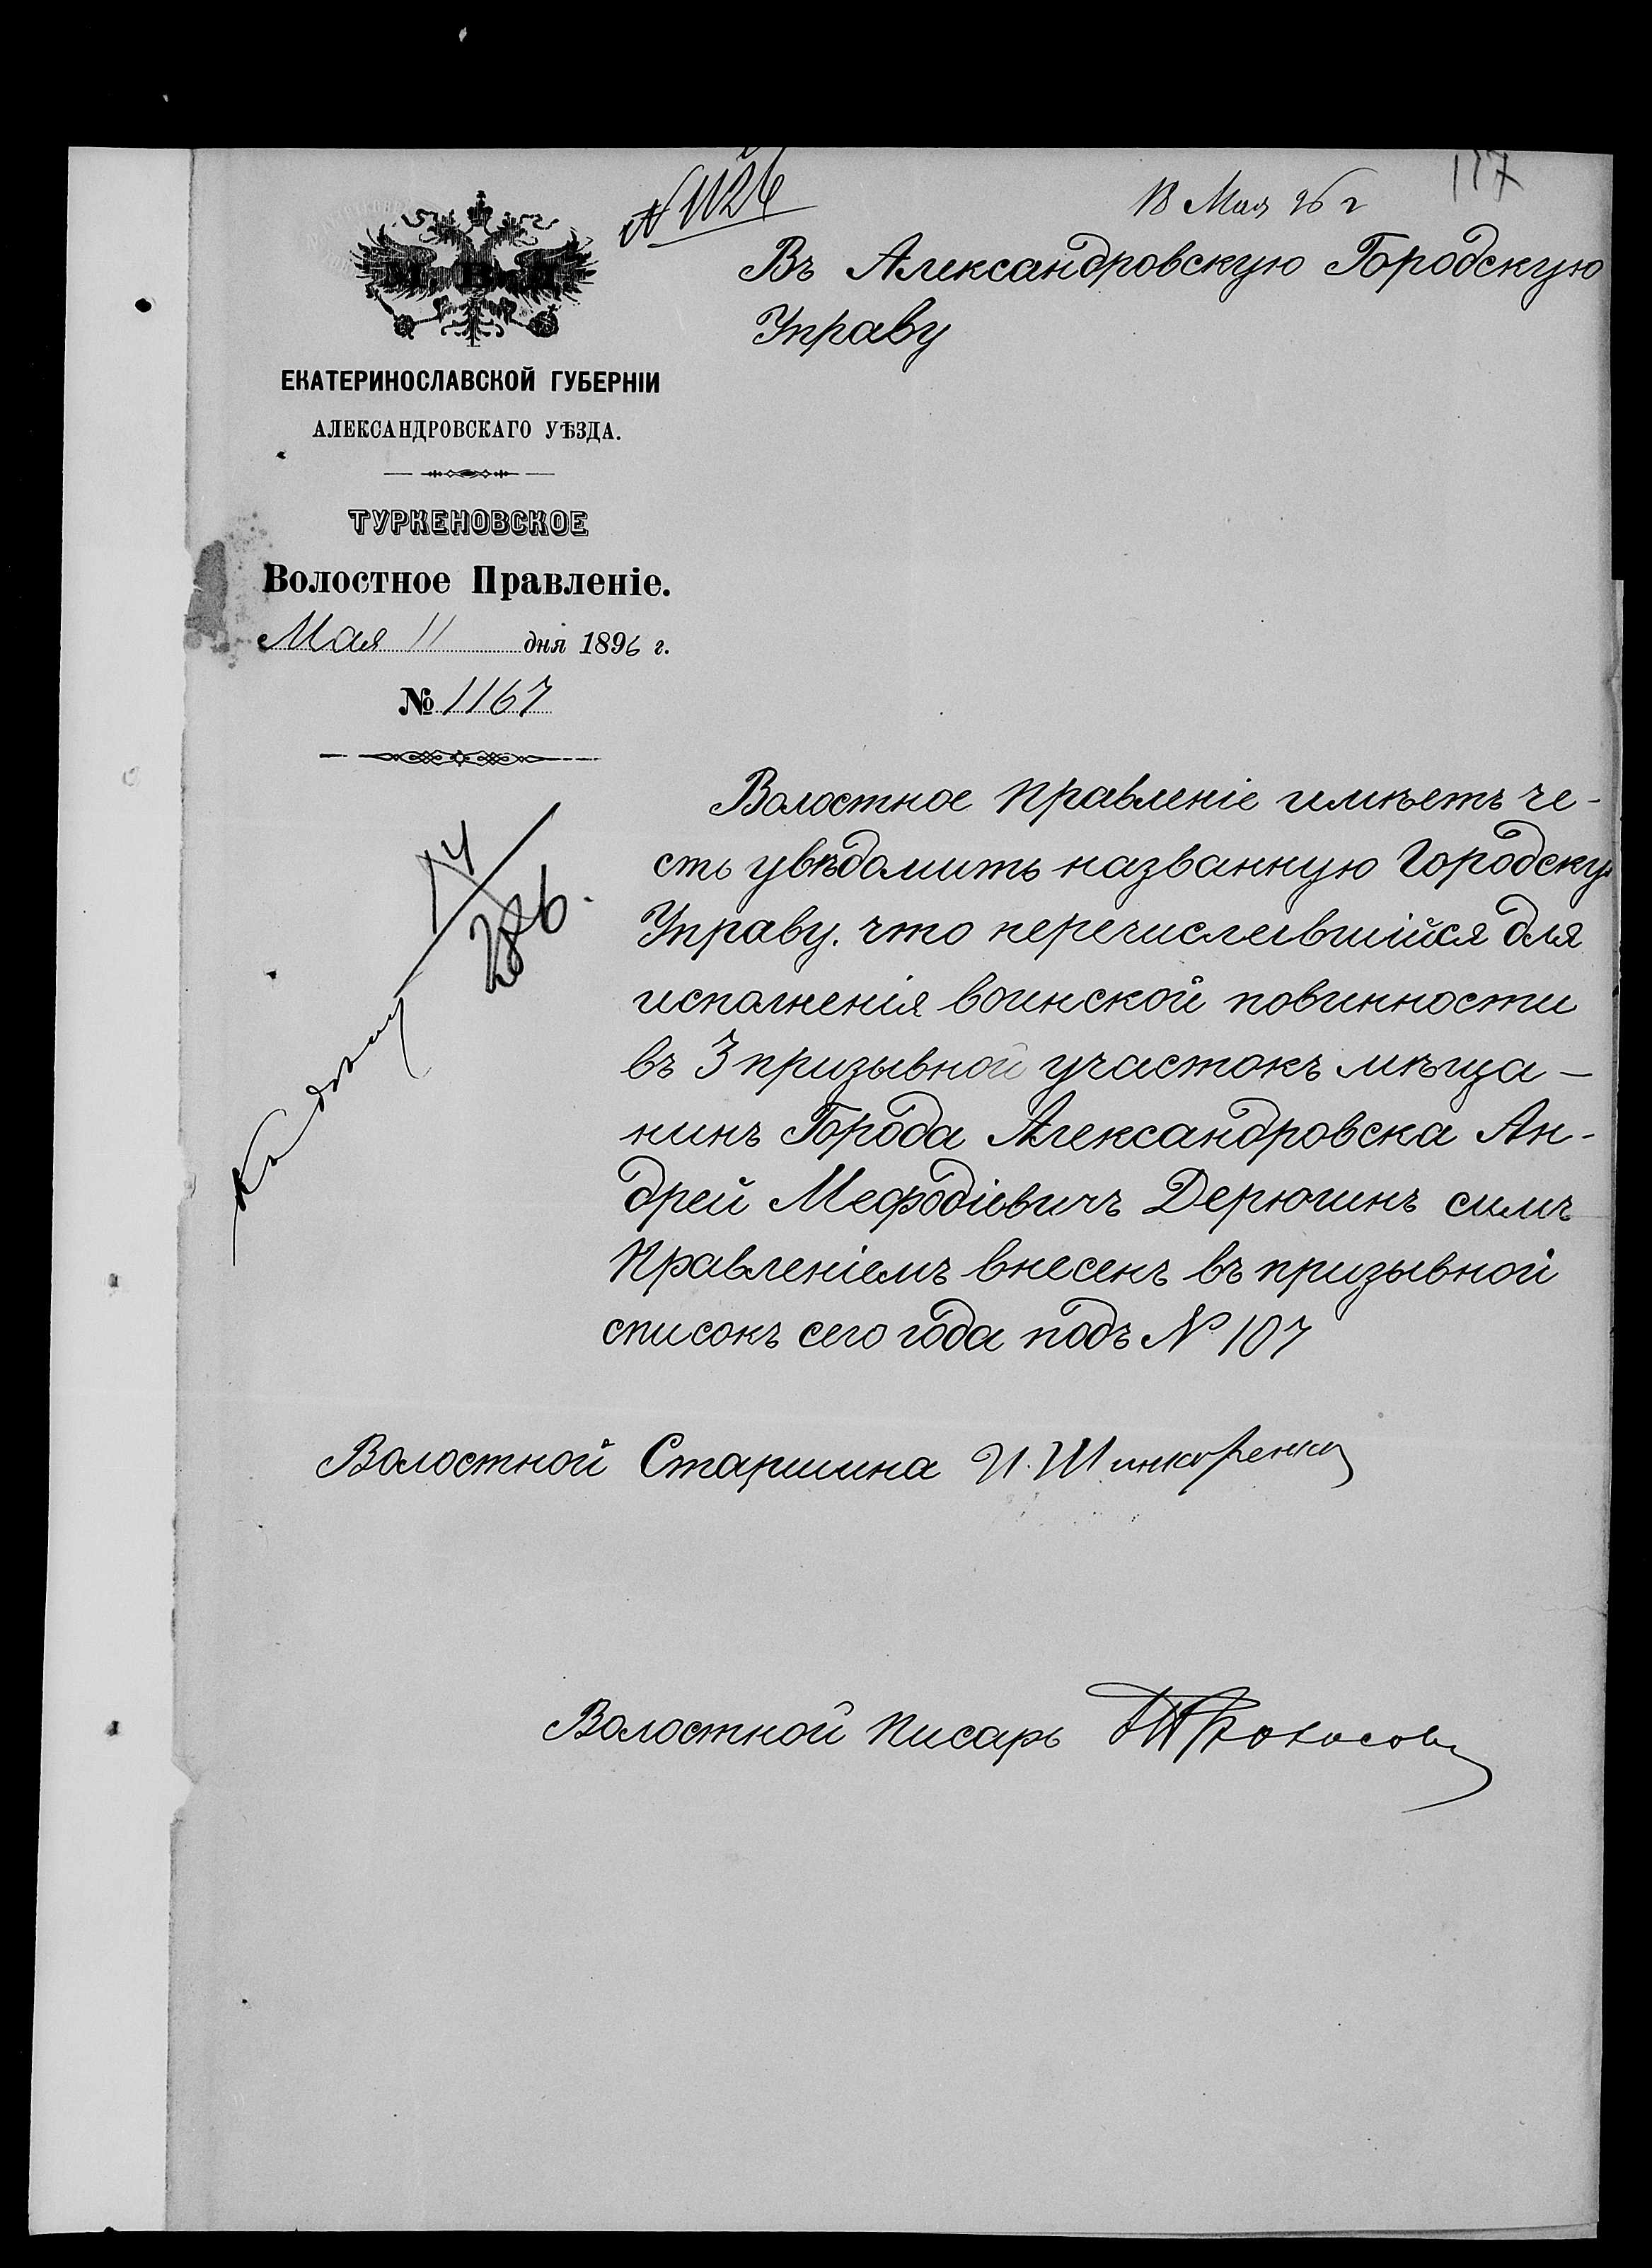 117
№ 1126
18 Мая 96 г
Въ Александровскую Городскую
Управу
М. В. Д.
ЕКАТЕРИНОСЛАВСКОЙ ГУБЕРНІИ
АЛЕКСАНДРОВСКАГО УѢЗДА.
ТУРКЕНОВСКОЕ
Волостное Правленіе.
Мая 11 дня 1896 г.
№ 1167
Къ дѣлу
14
286.
Волостное Правленіе имѣетъ че-
сть увѣдомить названную Городску
Управу. что перечислившійся для
исполненія воинской повинности
въ 3 призывной участокъ мѣща-
нинъ Города Александровска Ан-
дрей Мефодіевичъ Дерюгинъ симъ
Правленіемъ внесенъ въ призывной
списокъ сего года подъ № 107
Волостной Старшина И. Шинкаренко
Волостной Писарь